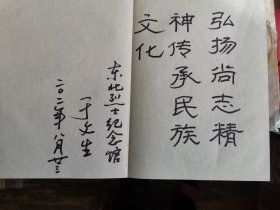 弘扬尚志精
神传承民族
文化
东北烈士纪念馆
于文生
二〇二一年八月廿三